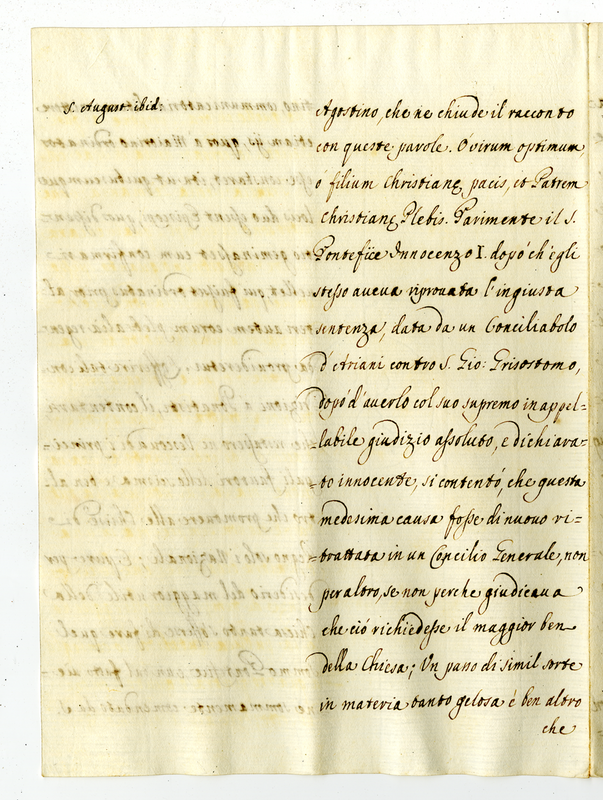 S. August: ibid:
Agostino, che ne chiude il racconto
con queste parole. Ó virum optimum,
o filium Christianę pacis, et Patrem
Christianę Plebis. Parimente il S.
Pontefice Innocenzo I. dopó ch'egli
stesso aveva riprovata l'ingiusta
sentenza, data da un Conciliabolo
d'Ariani contro S. Gio: Grisostomo,
dopó d'averlo col suo supremo inappel=
labile giudizio assoluto, e dichiara=
to innocente, si contentó, che questa
medesima causa fosse di nuovo ri=
trattata in un Concilio Generale, non
per altro, se non perche giudicava
che ció richiedesse il maggior ben
della Chiesa; Un passo di simil sorte
in materia tanto gelosa é ben altro
che